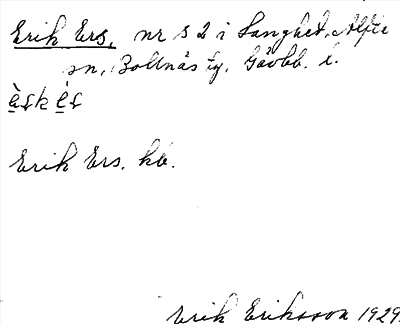 Erik Ers, nr 52 i Langhed, Alfta
sn, Bollnäs tg, Gävleb. l.
Erik Ers. hb.
Erik Eriksson 1929.